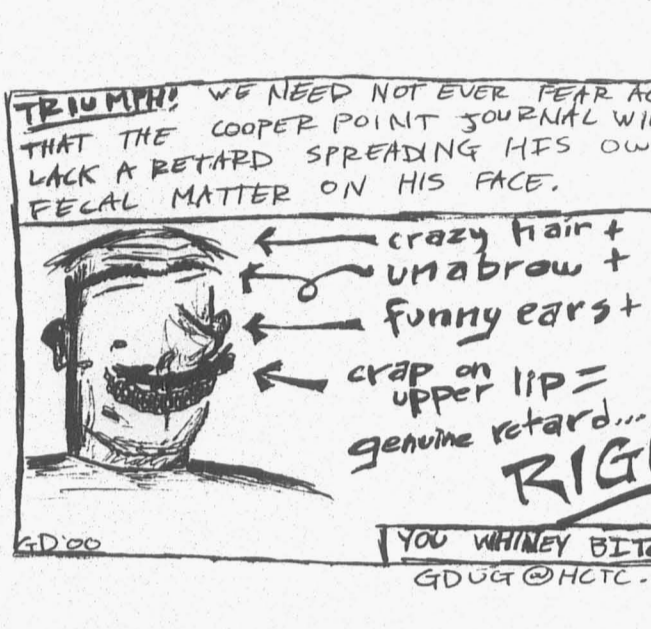 TRIUMPH! WE NEED NOT EVER FEAR
THAT THE COOPER POINT JOURNAL
LACK A RETARD SPREADING HIS
FECAL MATTER ON HIS FACE.
crazy hair +
unabrow +
funny ears +
crap on
upper lip =
genuine retard...
GD'00
YOU WHINEY
GDUG@HCTC.